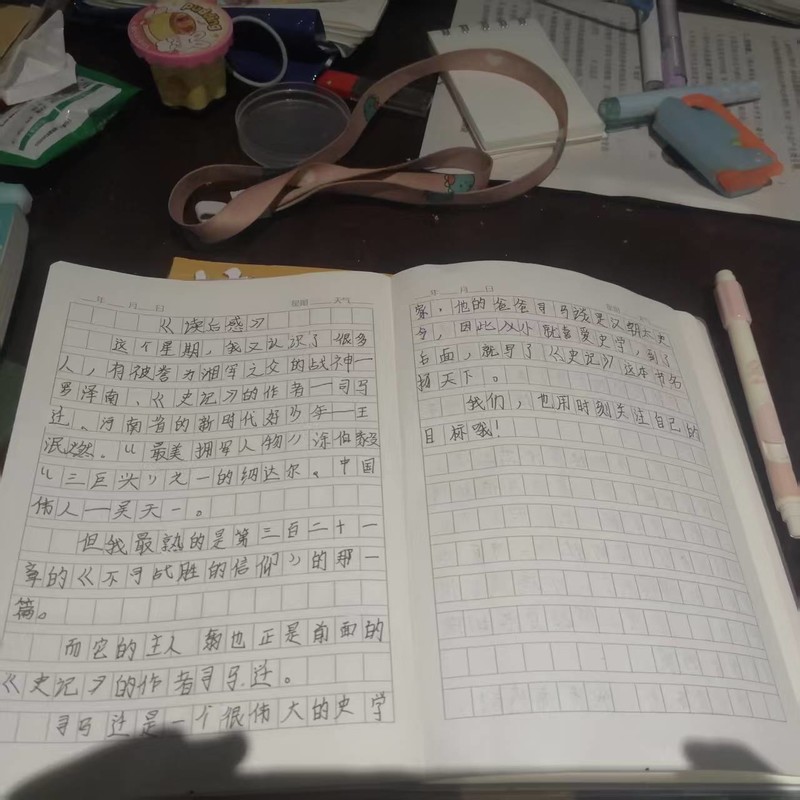 年 月 日 星期 天气
《读后感》
这个星期，我又认识了很多
人，有被誉为湘军之父的战神—
罗泽南、《史记》的作者—司马
迁、河南省的新时代好少年—王
泯燃。“最美拥军人物”涂伯
“三巨头”之一的纳达尔、中国
伟人—吴天一。
但我最熟的是第三百二十一
章的《不可战胜的信仰》的那一
篇。
而它的主人翁也正是前面的
《史记》的作者司马迁。
司马迁是一个很伟大的史学
年 月 日 星期
家，他的爸爸司马谈是汉朝太史
令，因此从小就喜爱史学，到了
后面，就写了《史记》这本书名
扬天下。
我们，也用时刻关注自己的
目标哦！